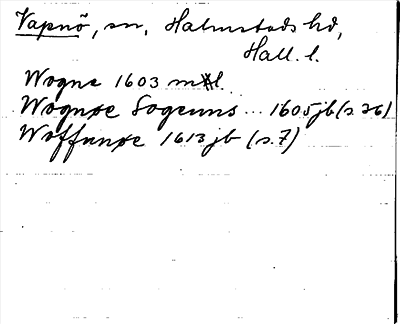 Vapnö, sn, Halmstads hd,
Hall. l.
Wogne 1603 mtl
Wognøe Sogenns ... 1605 jb (s. 26)
Woffnnøe 1613 jb (s. 7)